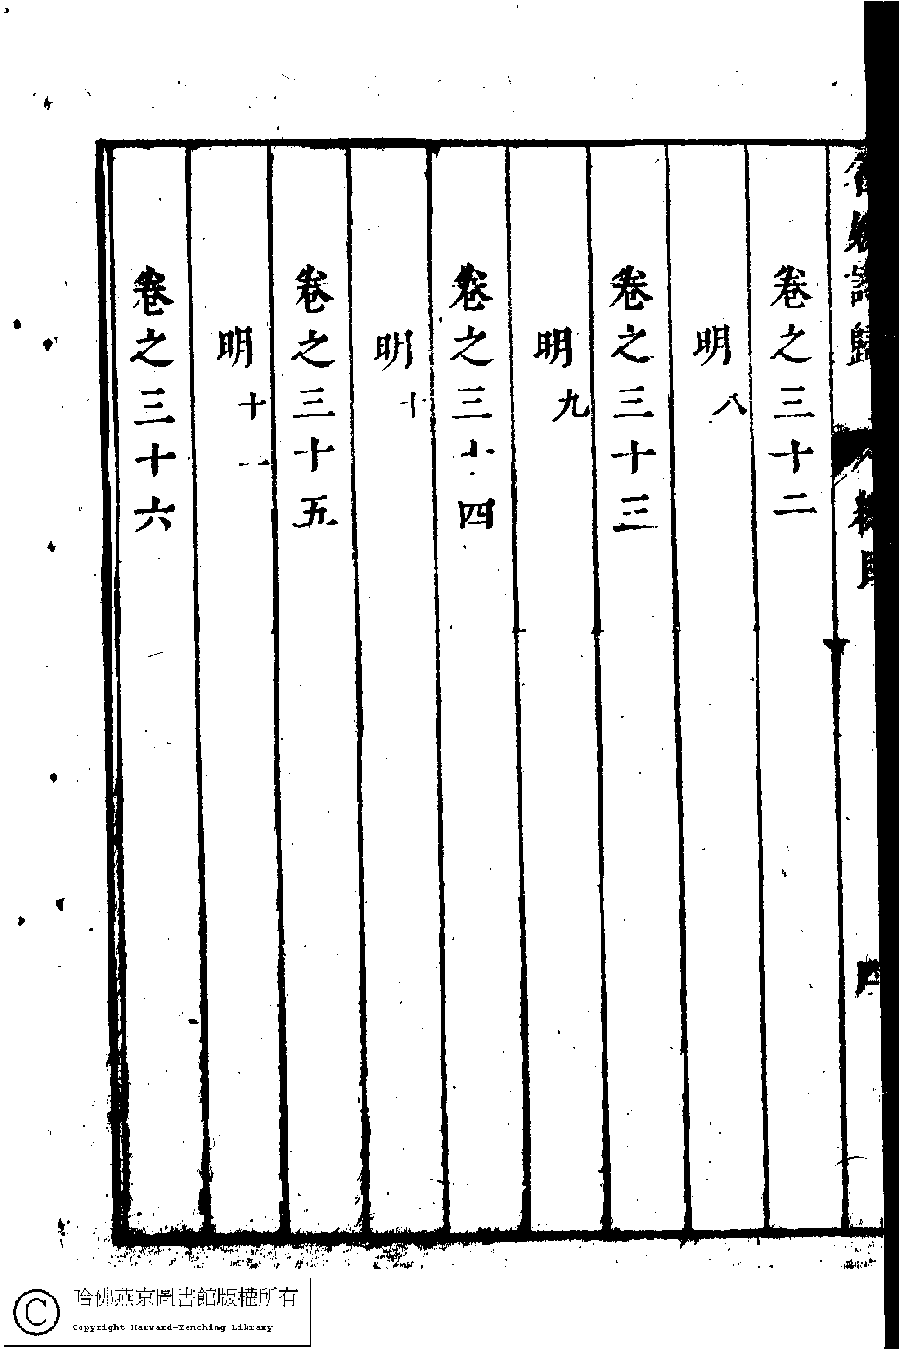 名媛詩歸
總目
四
卷之三十二
明八
卷之三十三
明九
卷之三十四
明十
卷之三十五
明十一
卷之三十六
哈佛燕京圖書館版權所有
Copyright Harvard-Yenching Library